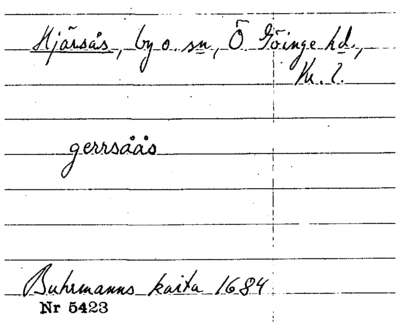 Hjärsås, by o. sn, Ö Göinge hd.,
Kr. l.
gerrsåås
Buhrmanns karta 1684
Nr 5423